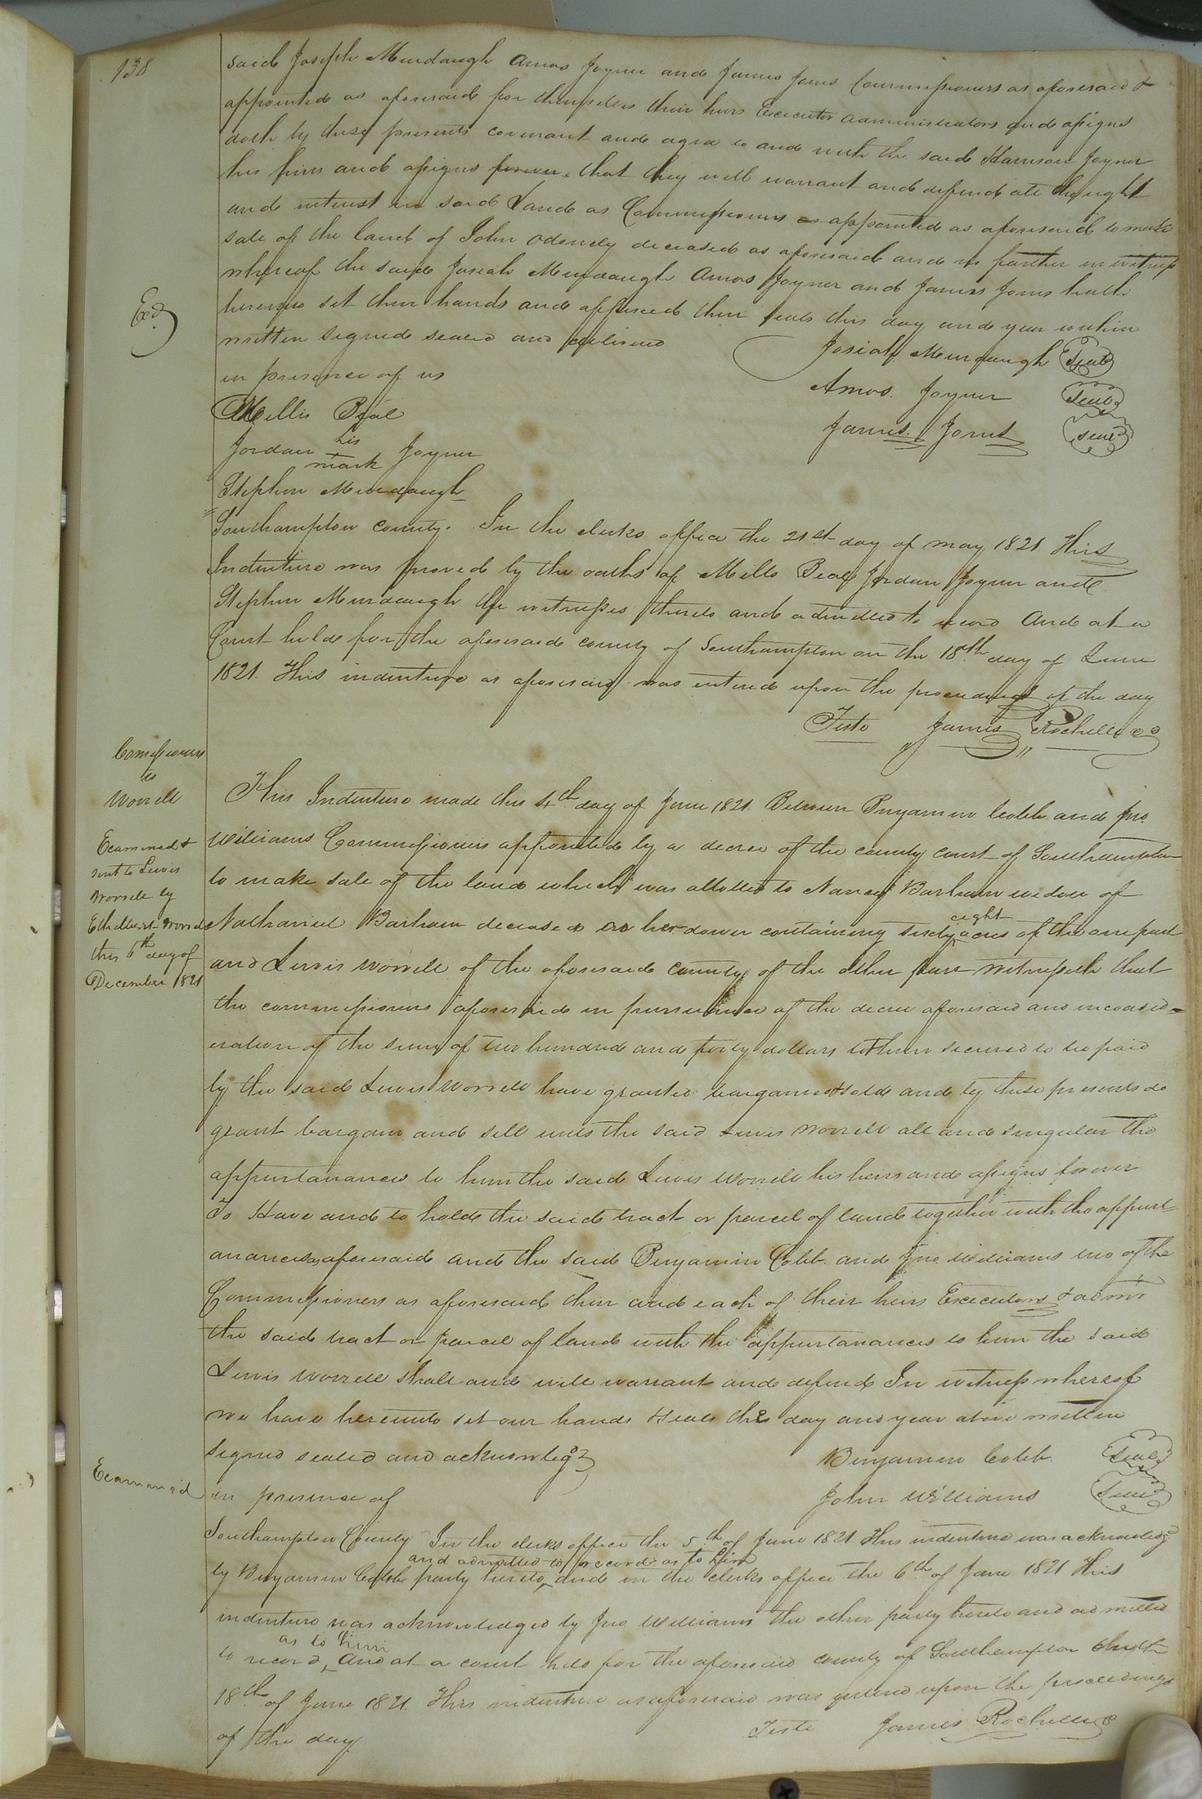 138
said Joseph Murdaugh Amos Joyner and James Jones Commissioners as aforesaid &
appointed as aforesaid for themselves their heirs Executors administrators and assigns
doth by these presents covenant and agree to and with the said Harrison Joyner
his heirs and assigns forever that they will warrant and defend all the right
and interest in said Land as Commissioners as appointed as aforesaid to make
sale of the land of John deceased as aforesaid and no farther in witness
whereof the said Josiah Murdaugh Amos Joyner and James Jones hath
hereunto set their hands and affixed their seals this day and year within
Exd
written signed sealed and delivered
in presence of us
Josiah Murdaugh Seal
Amos Joyner Seal
James Jones Seal
Mills Beal
Jordan his mark Joyner
Stephen Murdaugh
Southampton county. In the clerks office the 21st day of may 1821 This
Indenture was proved by the oaths of Mills Beal Jordan Joyner and
Stephen Murdaugh the witnesses thereto and admitted to record And at a
Court held for the aforesaid county of Southampton on the 18th day of June
1821 This indenture as aforesaid was entered upon the proceedings of the day
Teste James Rochelle cc
Comissioners
to
Worrell
Examined &
sent to Lewis
Worrell by
Ethelbert Worrell
this 6th day of
December 1821
This Indenture made this 4th day of June 1821 Between Benjamin Cobb and Jno
Williams Commissioners appointed by a decree of the county court of Southampton
to make sale of the land which was allotted to Nancy Barham widow of
Nathaniel Barham deceased as her dower containing sixty eight acres of the one part
and Lewis Worrell of the aforesaid county of the other part witnesseth that
the commissioners aforesaid in pursuance of the decree aforesaid and in consid=
eration of the sum of two hundred and forty dollars to them secured to be paid
by the said Lewis Worrell have granted bargained & sold and by these presents do
grant bargain and sell unto the said Lewis Worrell all and singular the
appurtanances to him the said Lewis Worrell his heirs and assigns forever
To Have and to hold the said tract or parcel of land together with the appurt
anances aforesaid and the said Benjamin Cobb and Jno Williams two of the
Commissioners as aforesaid their and each of their heirs Executors & admrs
the said tract or parcel of land with the appurtanances to him the said
Lewis Worrell shall and will warrant and defend In witness whereof
we have hereunto set our hands & seals the day and year above written
signed sealed and acknowlegd
Benjamin Cobb Seal
Examined
in presence of
John Williams Seal
Southampton County In the clerks office the 5th of June 1821 This indenture was acknowledged
by Benjamin Cobb party hereto and admitted to record as to him and in the clerks office the 6th of June 1821 This
indenture was acknowledged by Jno Williams the other party hereto and admitted
to record as to him And at a court held for the aforesaid county of Southampton the
18th of June 1821 This indenture as aforesaid was entered upon the proceedings
of the day
Teste James Rochelle c